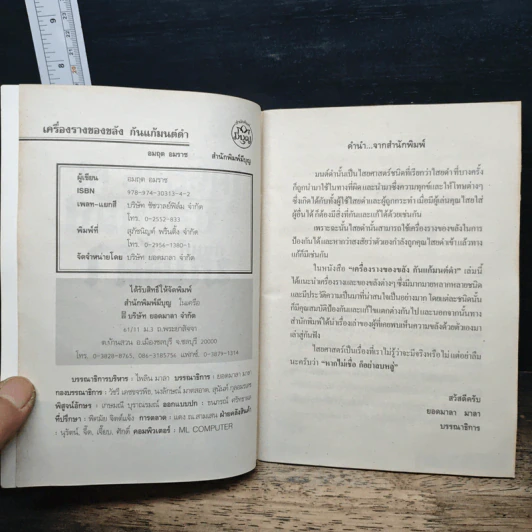 เครื่องรางของขลัง กันแก้มนต์ดำ
อมฤต อมราช
สำนักพิมพ์มีบุญ
ผู้เขียน อมฤต อมราช
ISBN 978-974-30313-4-2
เพลท-แยกสี บริษัท ชัชวาลย์ฟิล์ม จำกัด
โทร. 0-2552-833
พิมพ์ที่ สุภัชนิญค์ พริ้นติ้ง จำกัด
โทร. 0-2956-1380-1
จัดจำหน่ายโดย บริษัท ยอดมาลา จำกัด
ได้รับสิทธิ์ให้จัดพิมพ์
สำนักพิมพ์มีบุญ ในเครือ
บริษัท ยอดมาลา จำกัด
ต.บ้านสวน อ.เมืองชลบุรี จ.ชลบุรี
บรรณาธิการบริหาร : ไพลิน มาลา บรรณาธิการ : ยอดมาลา มาลา
กองบรรณาธิการ :
พิสูจน์อักษร : ออกแบบปก :
ที่ปรึกษา : การตลาด :
คอมพิวเตอร์ : ML COMPUTER
คำนำ...จากสำนักพิมพ์
มนต์ดำนั้นเป็นไสยศาสตร์ชนิดที่เรียกว่าไสยดำ ที่บางครั้ง
ก็ถูกนำมาใช้ในทางที่ผิดและนำมาซึ่งความทุกข์และโรคภัยต่างๆ
ซึ่งเกิดได้กับทั้งผู้ใช้ไสยดำและผู้ถูกกระทำ เมื่อมีผู้เล่นคุณไสยใส่
ผู้อื่นได้ก็ต้องมีสิ่งที่กันและแก้ได้ด้วยเช่นกัน
เพราะฉะนั้นไสยดำนั้นสามารถใช้เครื่องรางของขลังในการ
ป้องกันได้และหากว่าสงสัยว่าตัวเองกำลังถูกคุณไสยดำเข้าแล้วทาง
แก้ก็มีเช่นกัน
ในหนังสือ "เครื่องรางของขลัง กันแก้มนต์ดำ" เล่มนี้
ได้แนะนำเครื่องรางและของขลังต่างๆ ซึ่งมีมากมายหลากหลายชนิด
และมีประวัติความเป็นมาที่น่าสนใจเป็นอย่างมาก โดยแต่ละชนิดนั้น
ก็มีคุณสมบัติป้องกันและแก้ไขแตกต่างกันไป และนอกจากนั้นทาง
สำนักพิมพ์ได้นำเรื่องเล่าของผู้ที่เคยพบเห็นความขลังด้วยตัวเองมา
เล่าสู่กันฟัง
ไสยศาสตร์เป็นเรื่องที่เราไม่รู้ว่าจะมีจริงหรือไม่ แต่อย่าลืม
นะครับว่า "หากไม่เชื่อ ก็อย่าลบหลู่"
สวัสดีครับ
ยอดมาลา มาลา
บรรณาธิการ
8
9